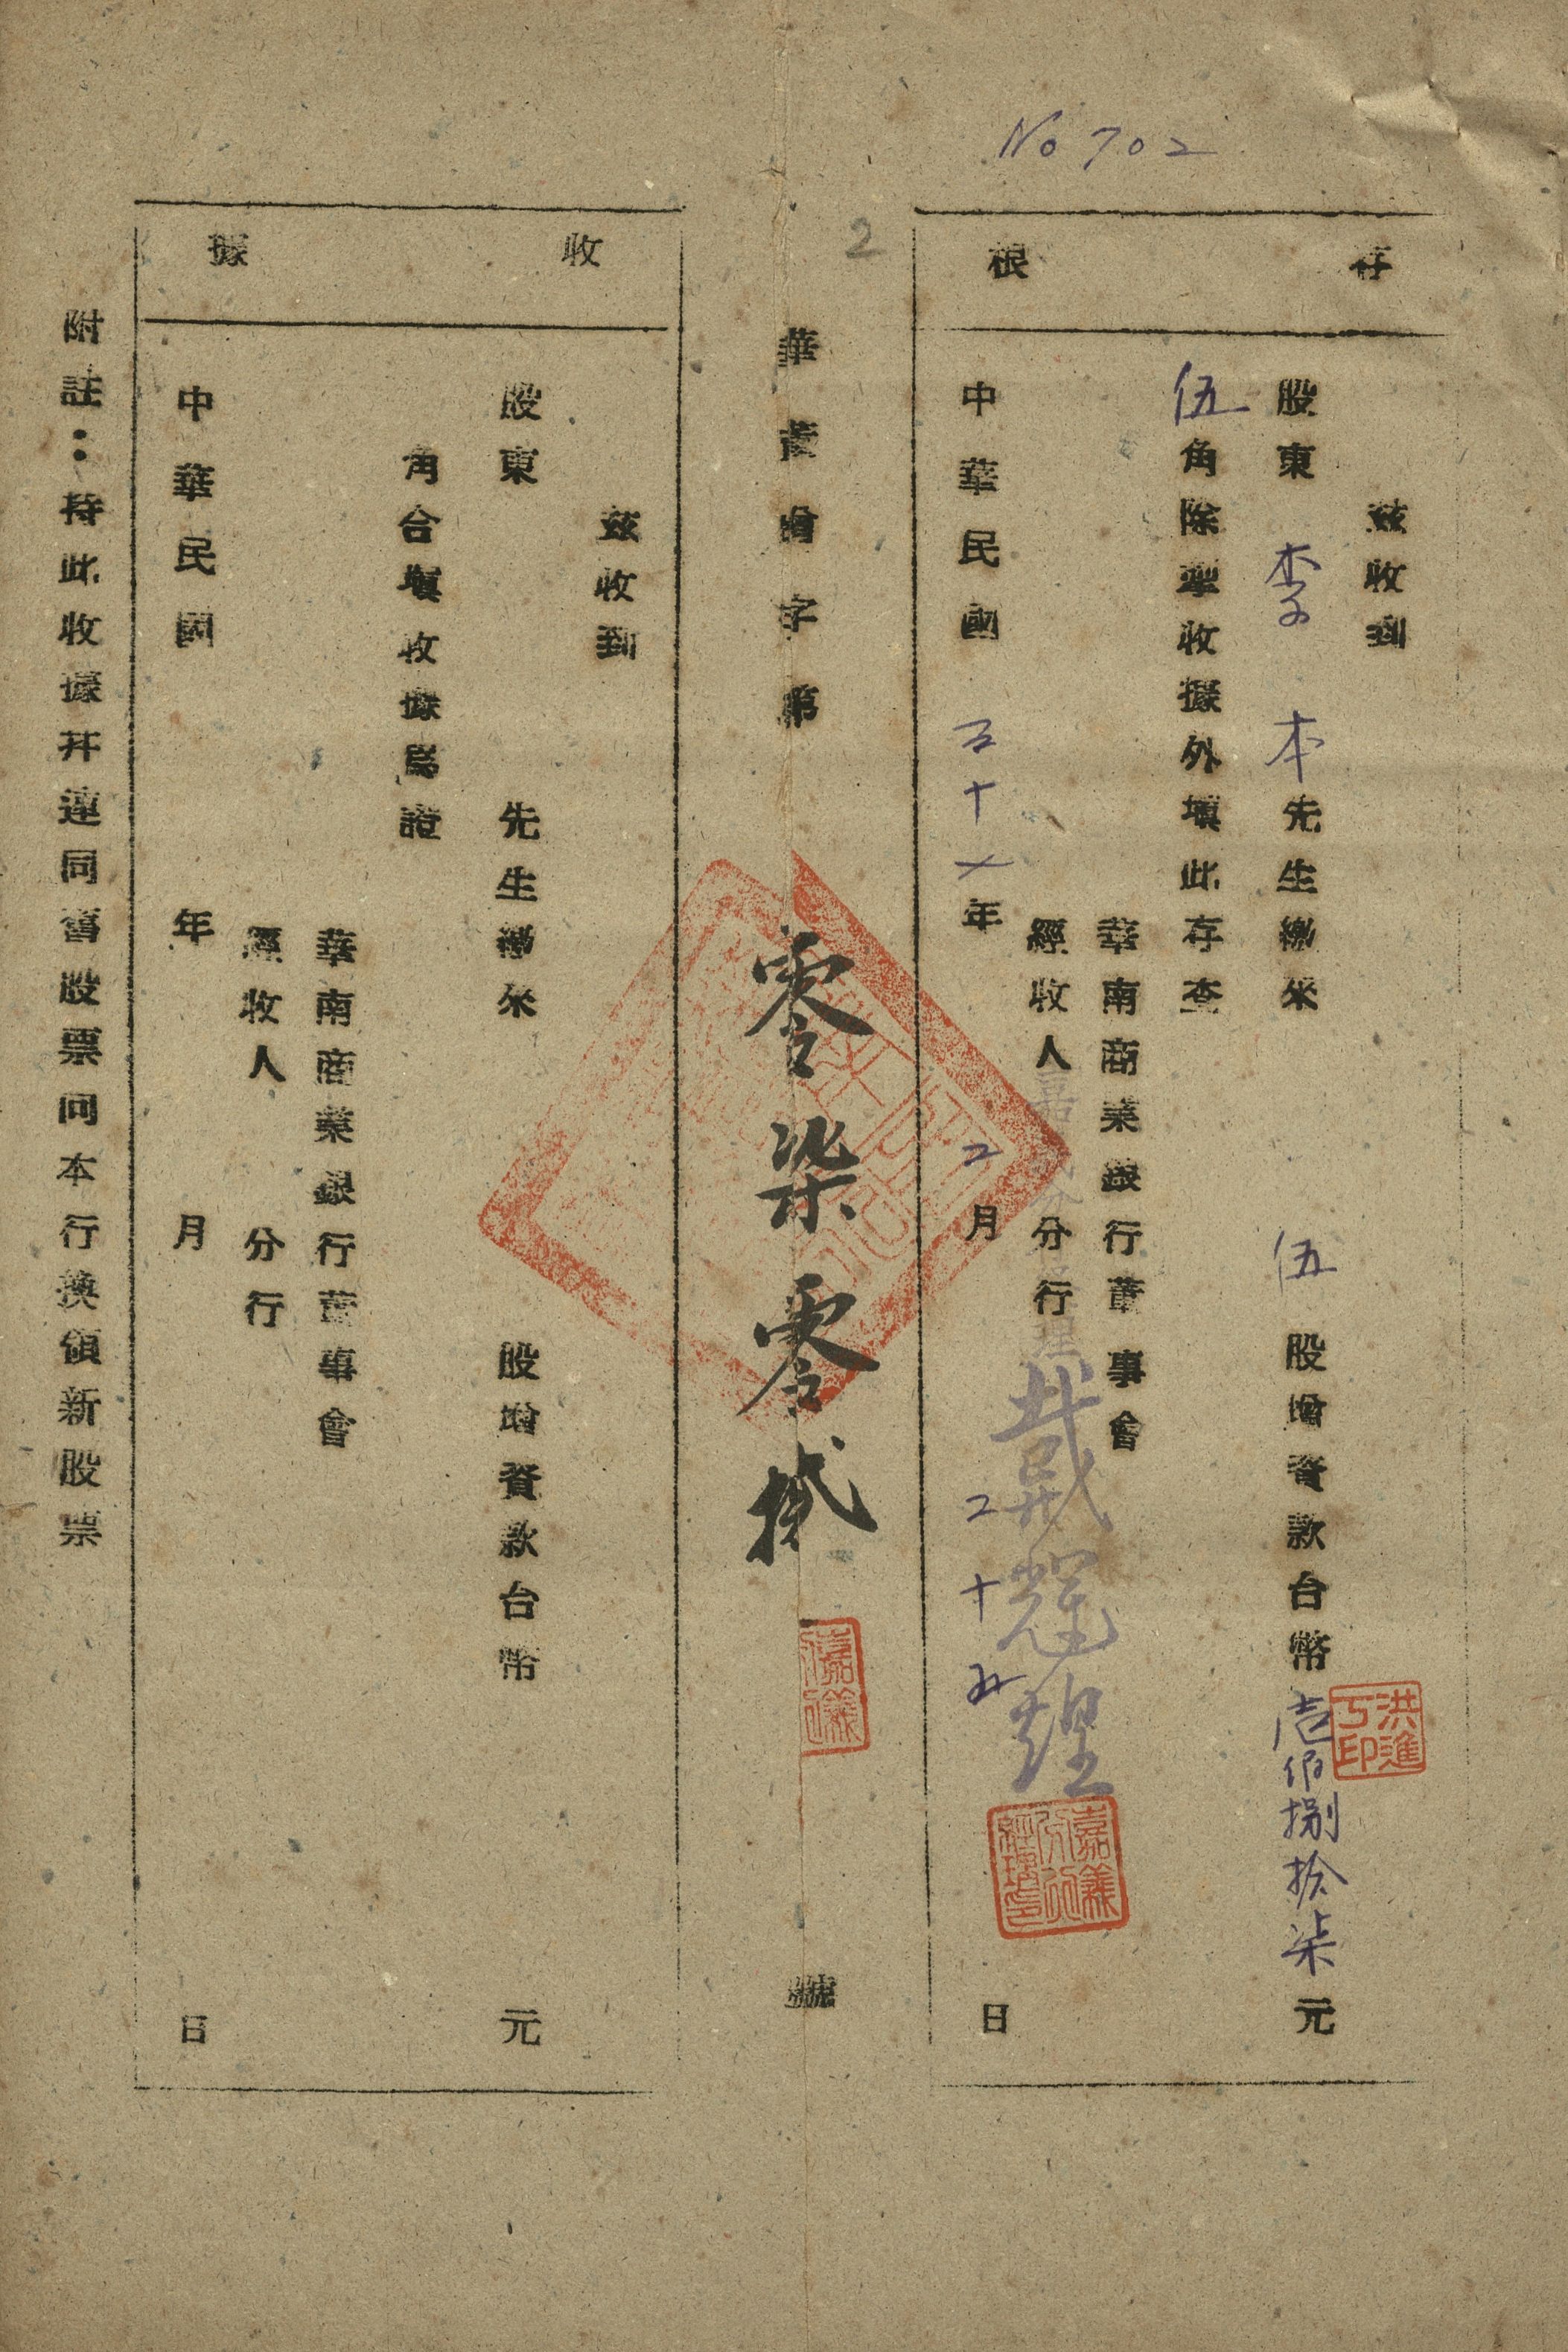 No 702
2
存根
茲收到
股東 李 本 先生繳來 伍 股增資款台幣 壹佰捌拾柒 元
伍角除掣收據外填此存查
華南商業銀行董事會
經收人 嘉義分行經理 分行
戴輝煌
中華民國 五十 年 2 月 二十五 日
洪進丁印
嘉義分行經理印
華董增字第 零柒零貳 號
嘉義
收據
茲收到
股東 先生繳來 股增資款台幣 元
角合填收據為證
華南商業銀行董事會
經收人 分行
中華民國 年 月 日
附註：持此收據并連同舊股票向本行換領新股票